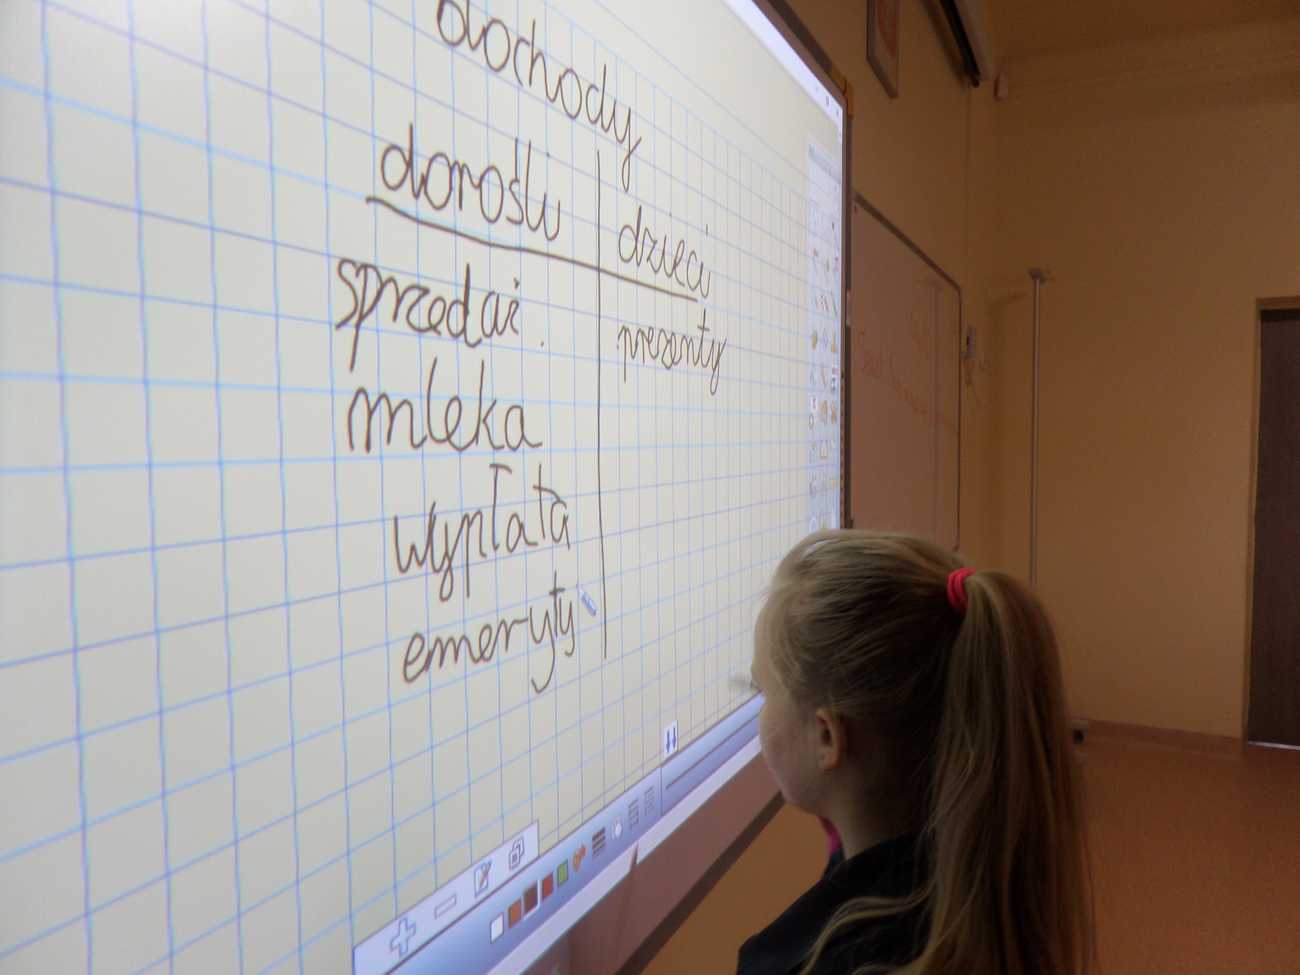 dochody
dorośli dzieci
sprzedaż prezenty
mleka
wypłata
emeryty